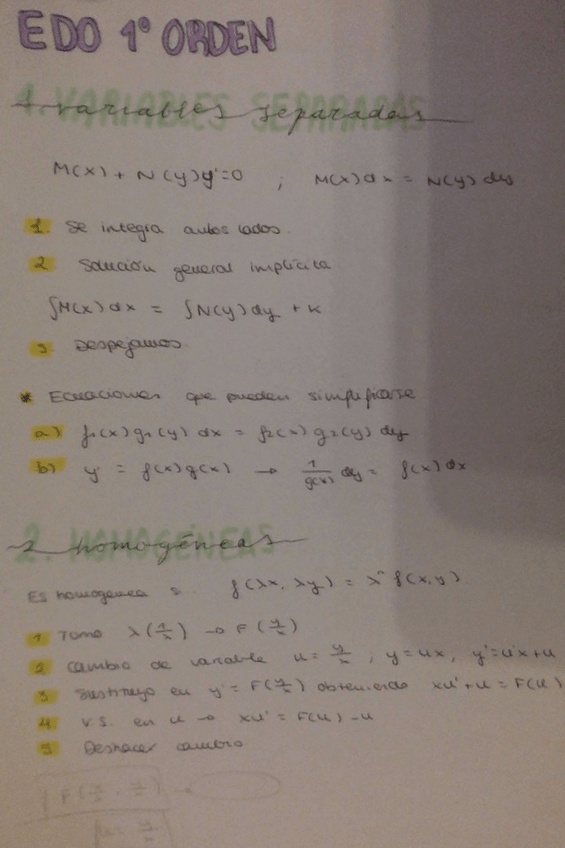 EDO 1º ORDEN
1. variables separadas
M(x) + N(y)y'=0 ; M(x)dx = N(y)dy
1 Se integra ambos lados.
2 Solución general implícita
∫M(x)dx = ∫N(y)dy + K
3 Despejamos.
* Ecuaciones que pueden simplificarse
a) f₁(x)g₁(y) dx = f₂(x)g₂(y) dy
b) y' = f(x)g(x) → 1/g(x) dy = f(x)dx
2 homogéneas
Es homogenea si f(λx, λy) = λⁿ f(x,y)
1 Tomo λ(1/x) → F(y/x)
2 cambio de variable u = y/x ; y=ux, y'=u'x+u
3 Sustituyo en y' = F(y/x) obteniendo xu'+u = F(u)
4 V.S. en u → xu' = F(u) -u
5 Deshacer cambio